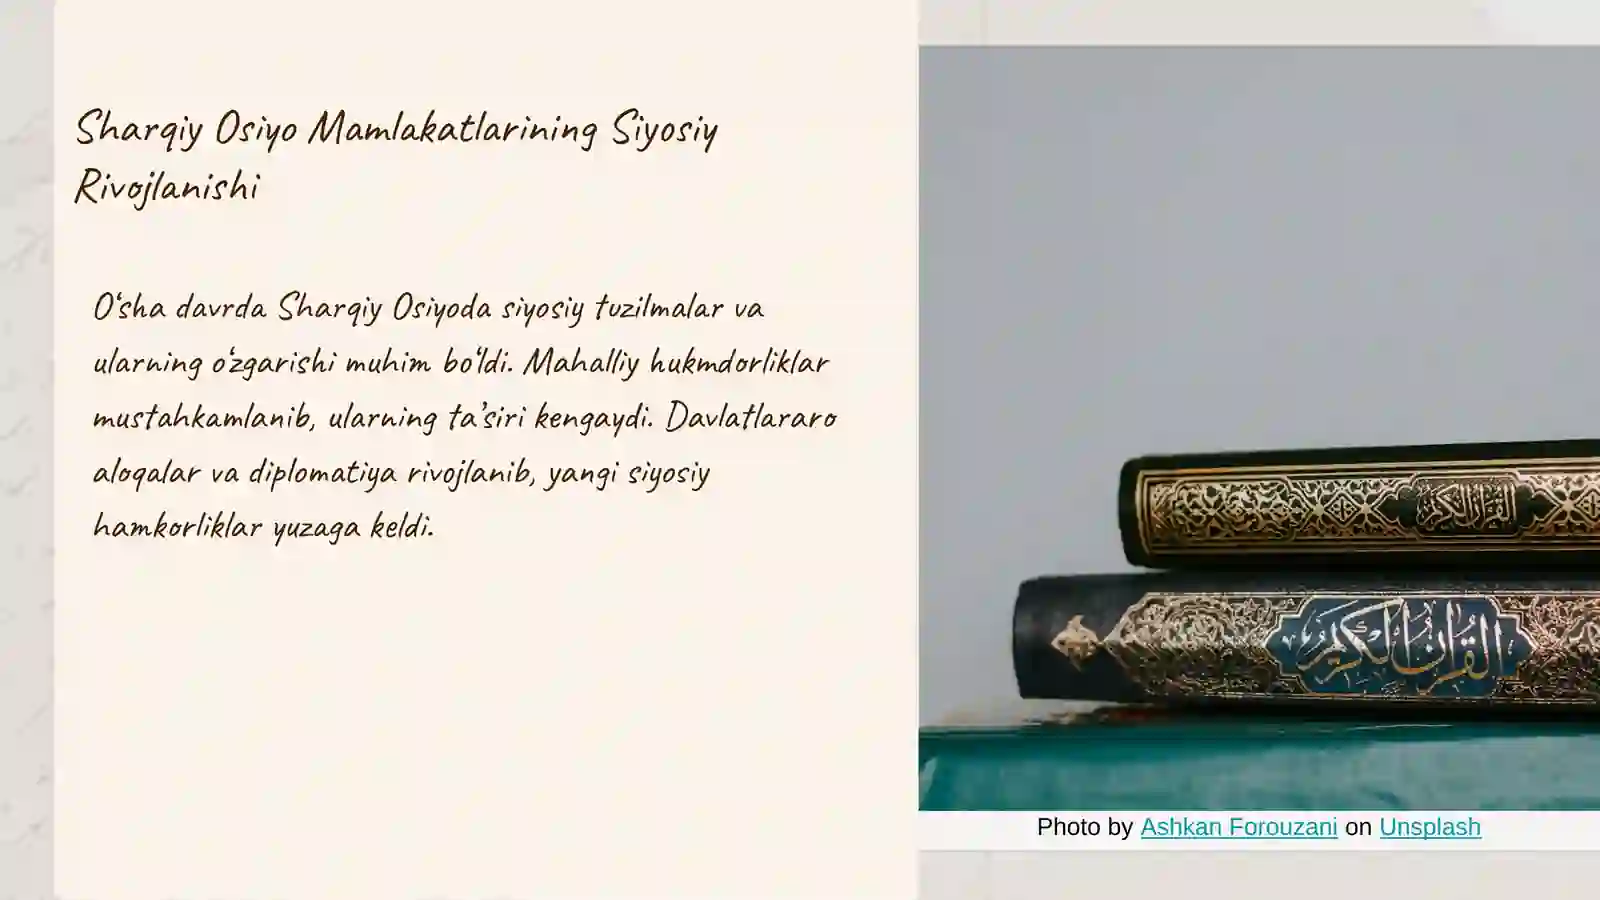 Sharqiy Osiyo Mamlakatlarining Siyosiy
Rivojlanishi
Oʻsha davrda Sharqiy Osiyoda siyosiy tuzilmalar va
ularning oʻzgarishi muhim boʻldi. Mahalliy hukmdorliklar
mustahkamlanib, ularning ta’siri kengaydi. Davlatlararo
aloqalar va diplomatiya rivojlanib, yangi siyosiy
hamkorliklar yuzaga keldi.
القرآن الكريم
القرآن الكريم
Photo by Ashkan Forouzani on Unsplash